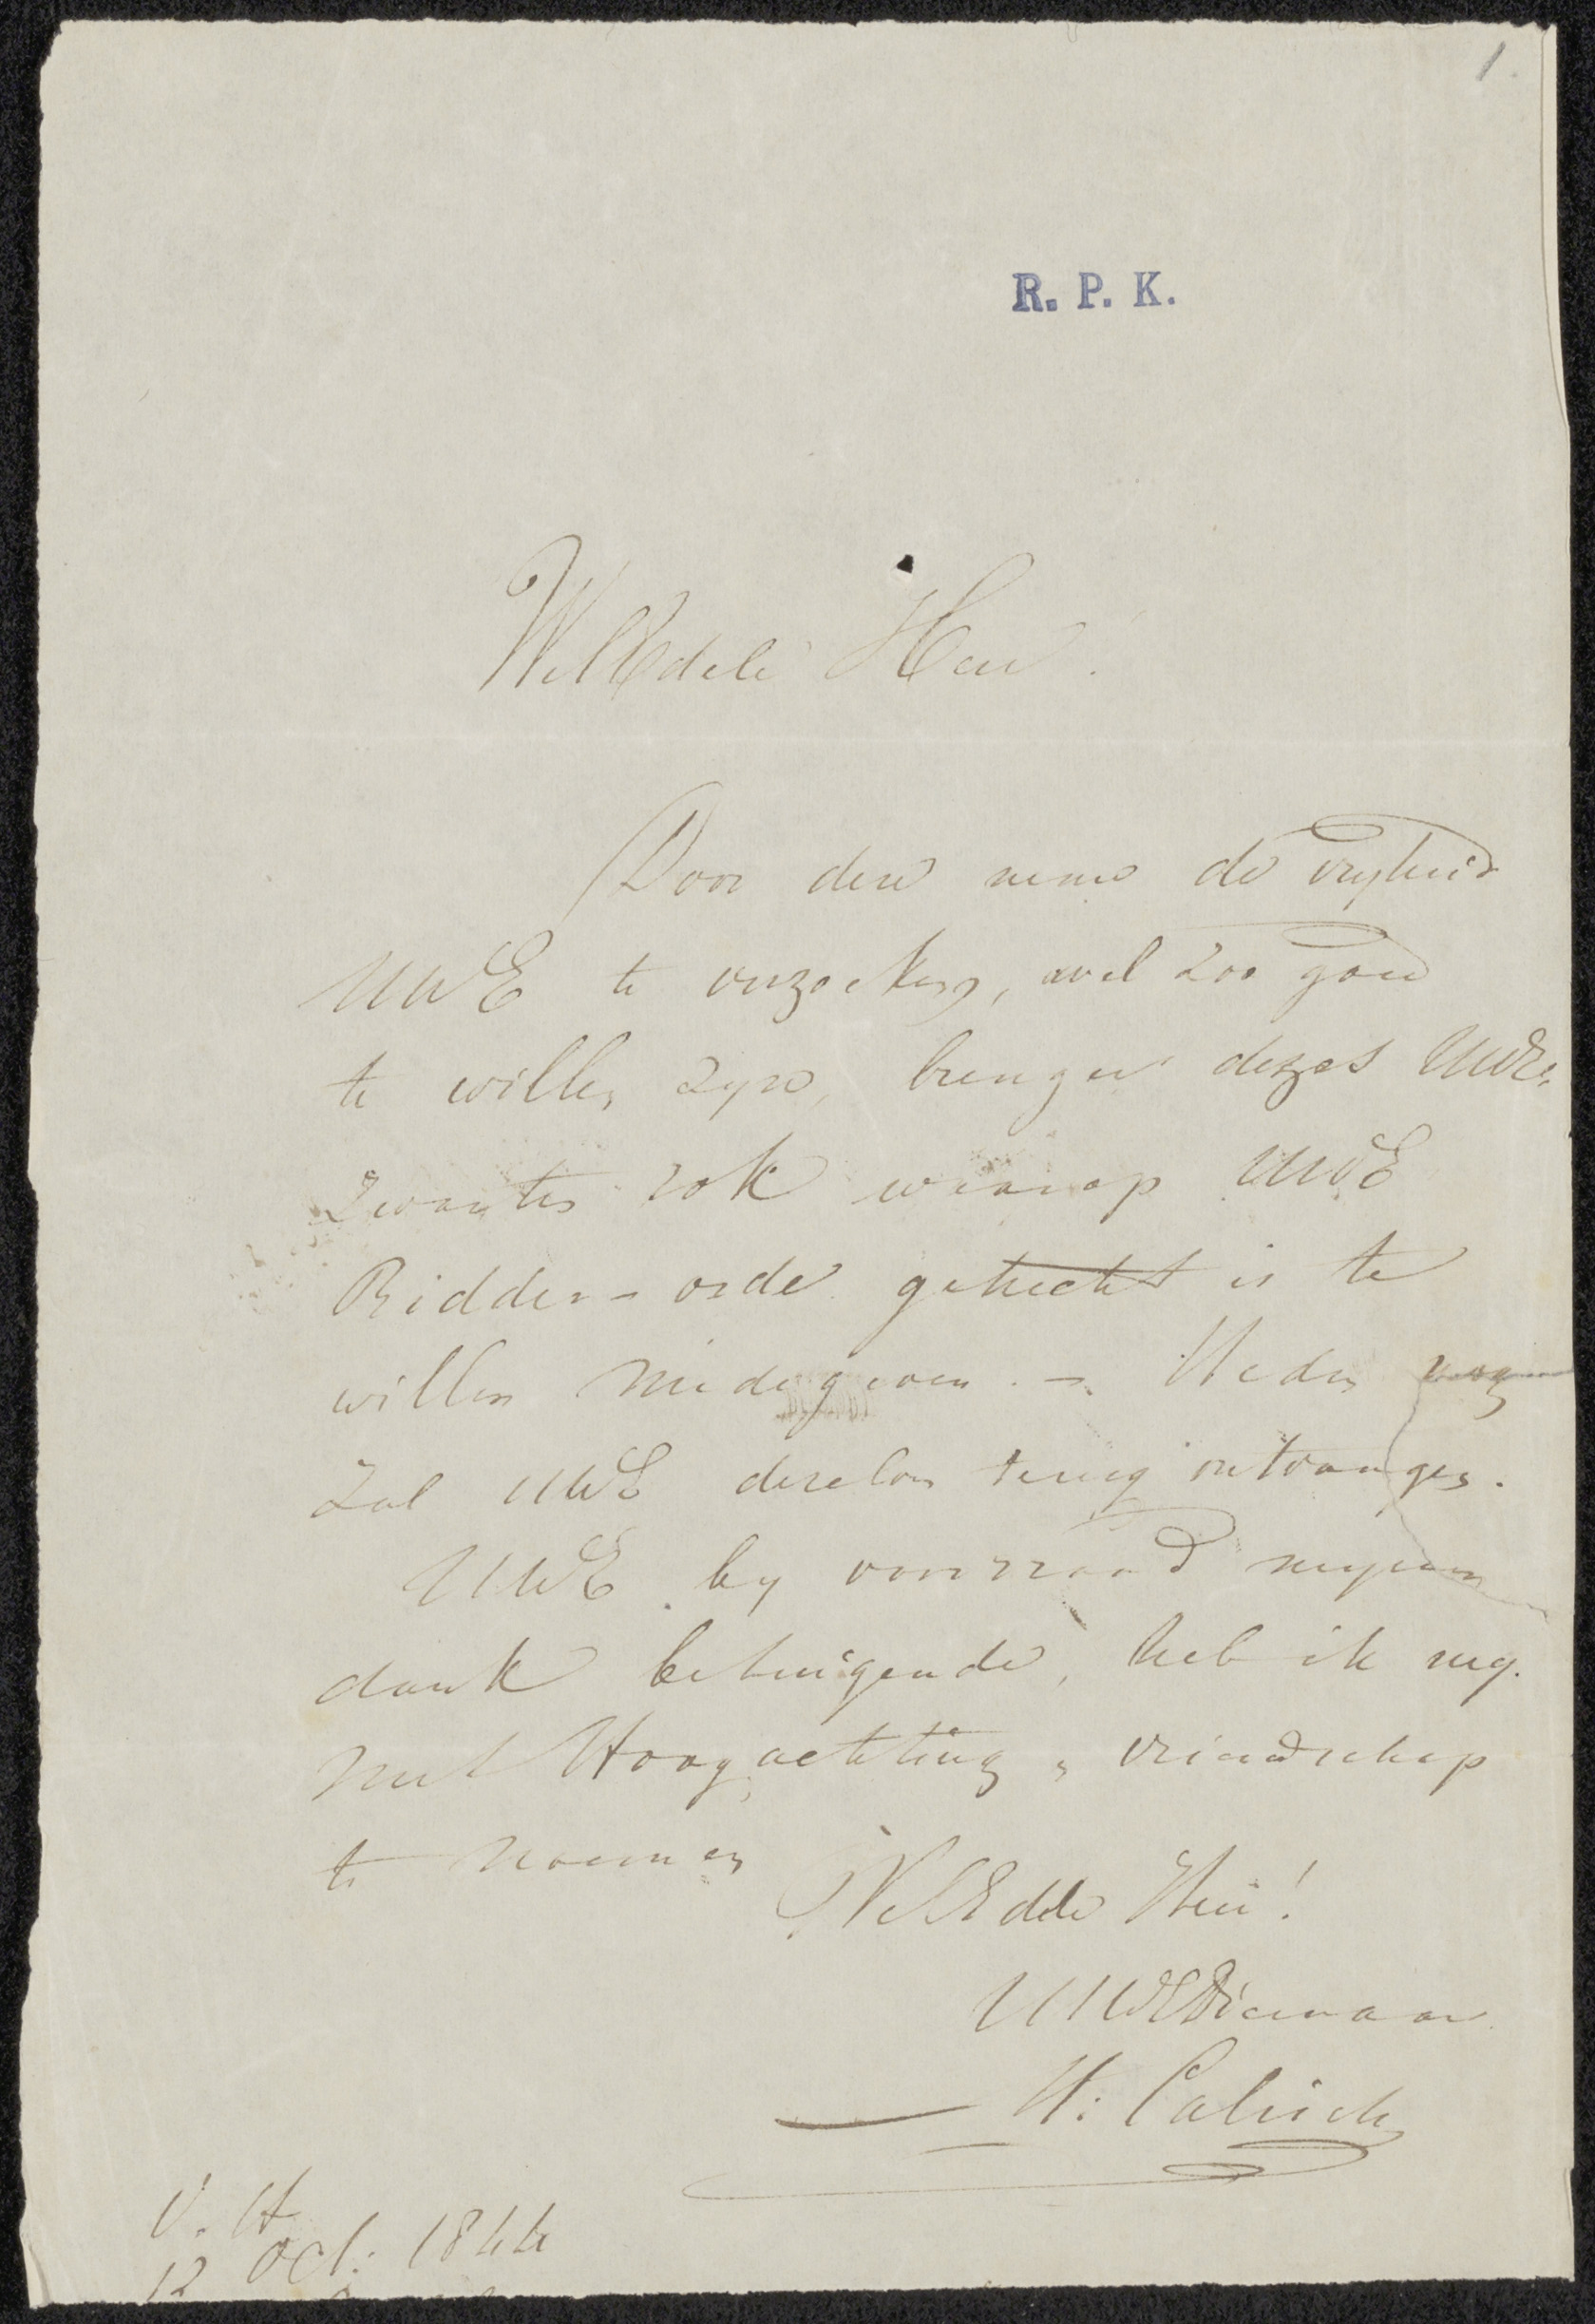 1.
R. P. K.
WelEdele Heer!
Door deze neme de vryheid
UWE te verzoeken, wel zoo goed
te willen zyn, brenger dezes UWEs
zwarten rok waarop UWE
Ridder-orde gehecht is te
willen medegeven. – Heden nog
zal UWE dezelve terug ontvangen.
UWE by voorraad mynen
dank betuigende, heb ik my
met Hoogachting & vriendschap
te noemen
WelEdele Heer!
UWEDienaar
H: Calisch
V. H
12 Oct: 1844